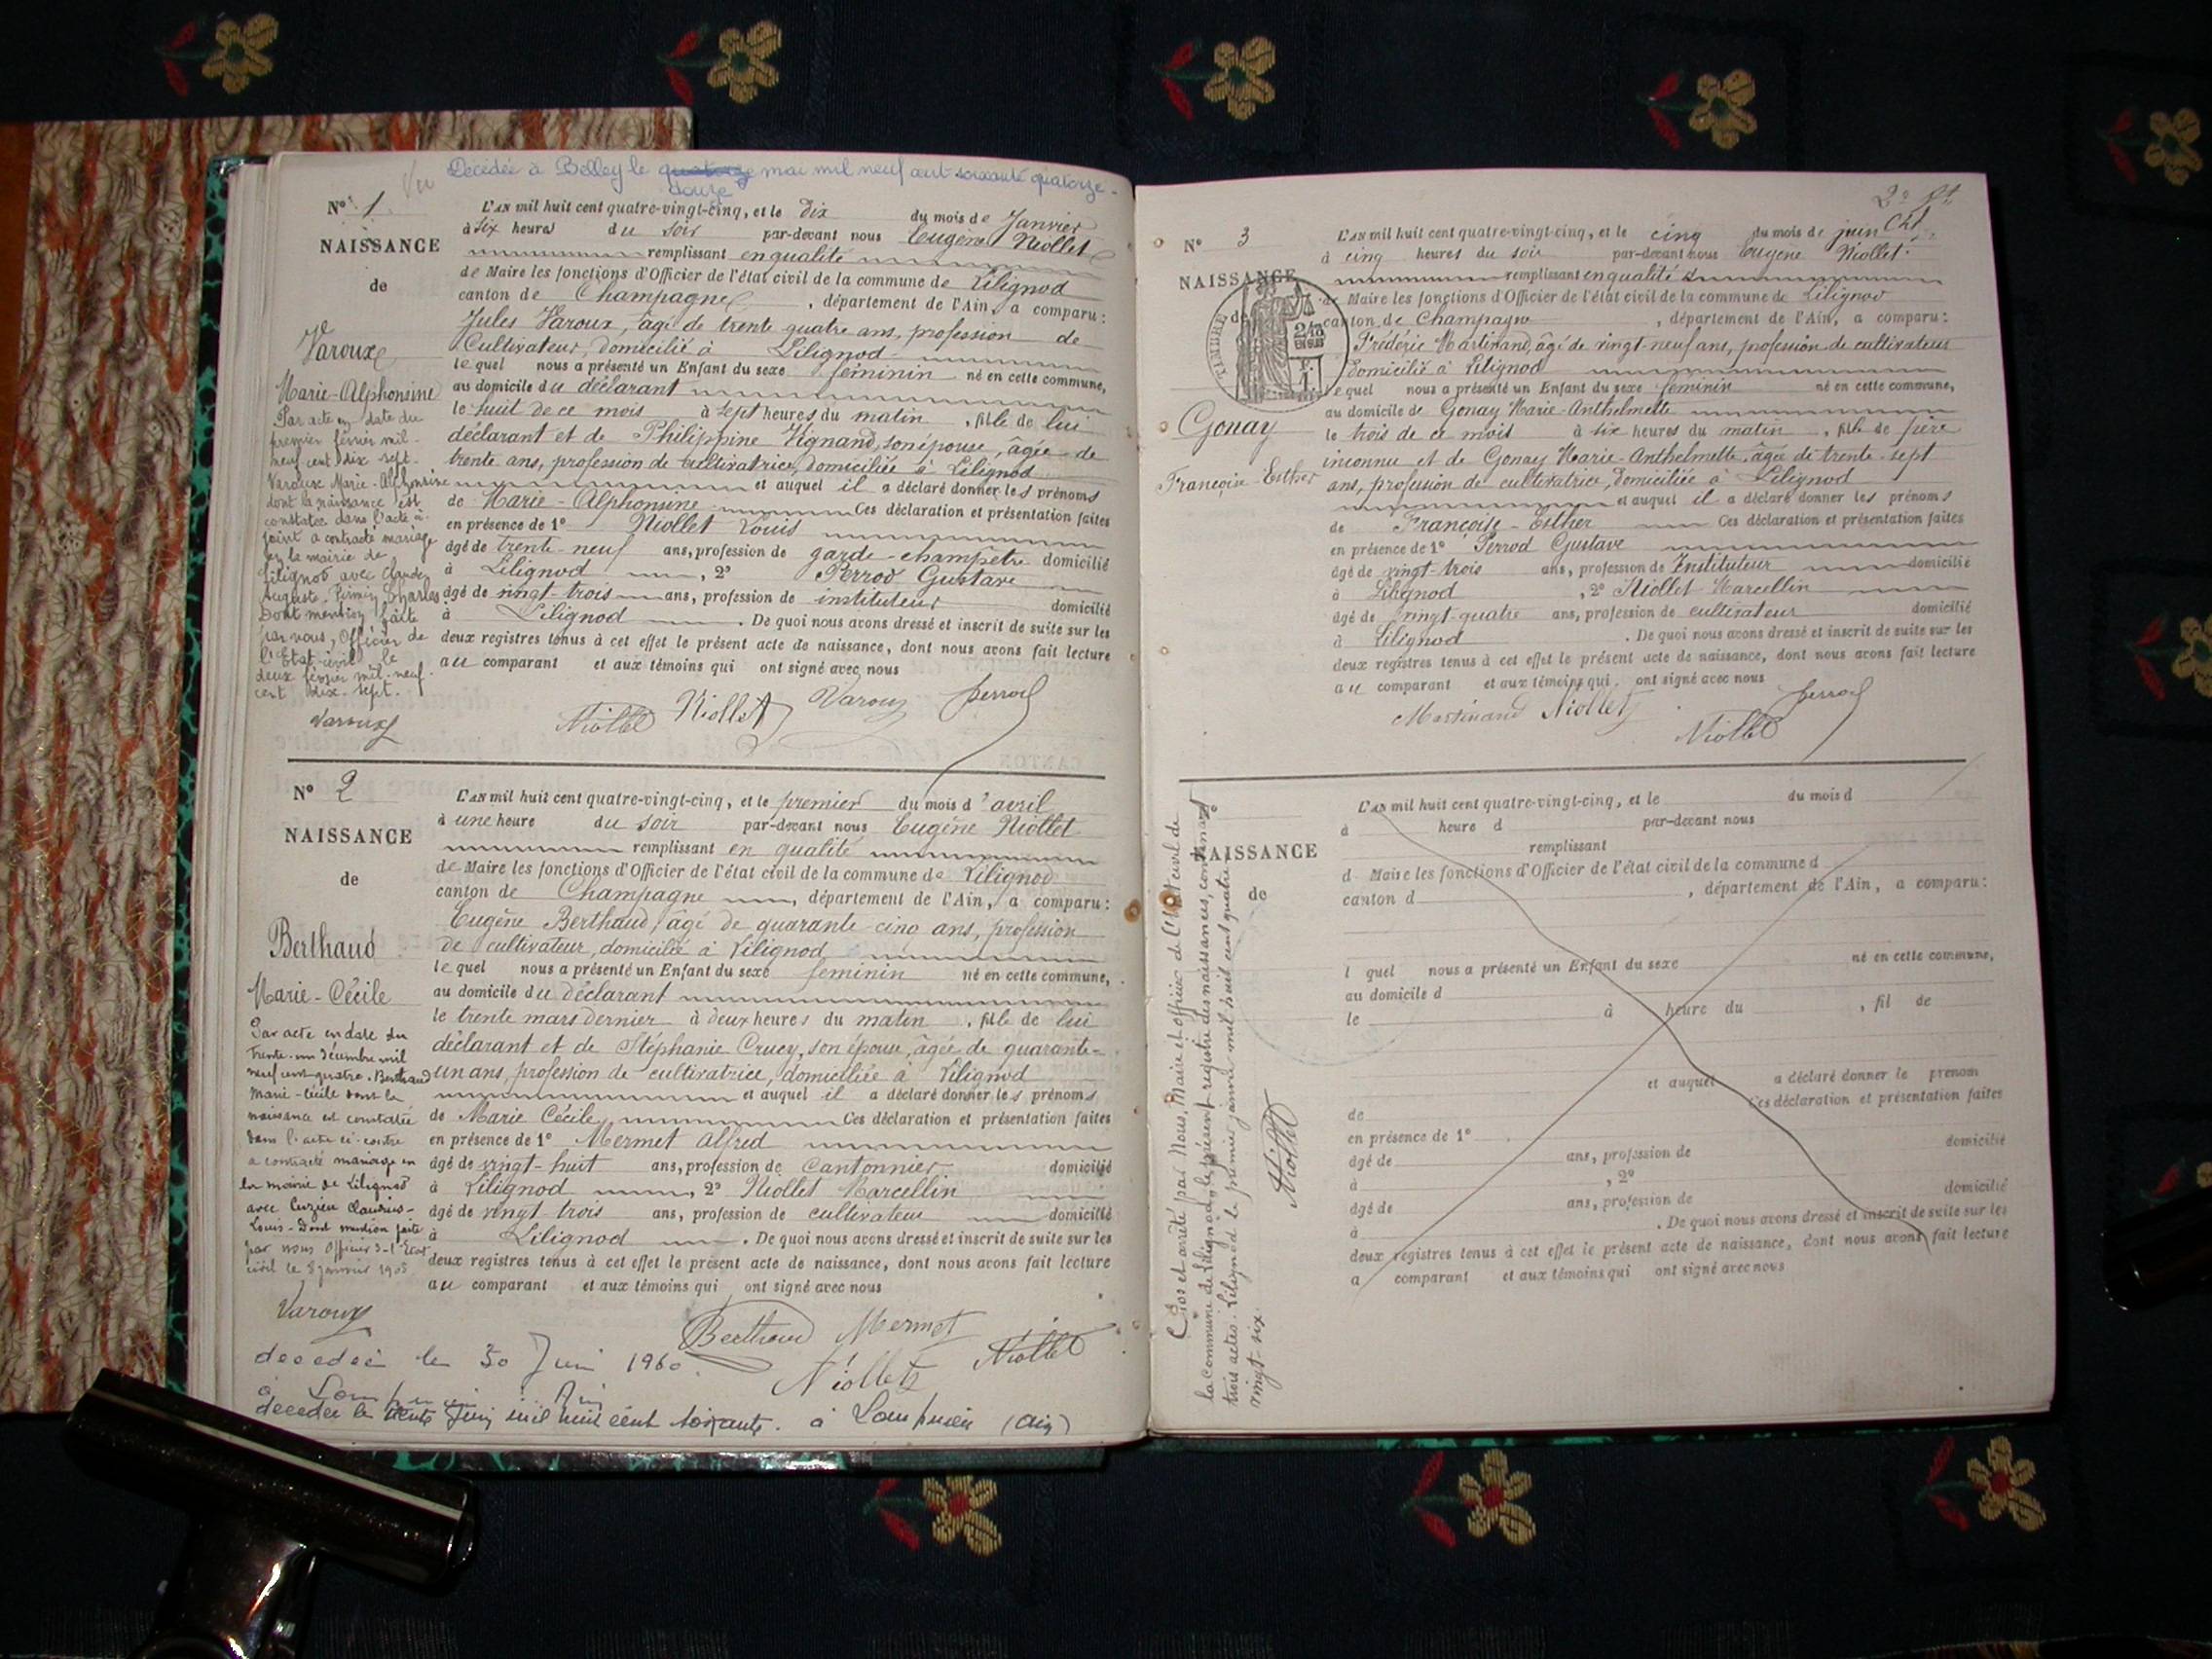 Vu Décédée à Belley le quatorze mai mil neuf cent soixante quatorze.
douze
N° 1
NAISSANCE
de
Varoux
Marie-Alphonsine
Par acte en date du
premier février mil
neuf cent dix sept.
Varoux Marie-Alphonsine
dont la naissance est
constatée dans l'acte ci-
joint a contracté mariage
en la mairie de
Lilignod avec Claude
Auguste, Charles
Dont mention faite
par nous, Officier de
l'Etat civil le
deux février mil-neuf
cent dix-sept.
Varoux
L'AN mil huit cent quatre-vingt-cinq, et le dix du mois de Janvier
à six heures du soir par-devant nous Eugène Niollet
remplissant en qualité
de Maire les fonctions d'Officier de l'état civil de la commune de Lilignod
canton de Champagne, département de l'Ain, a comparu:
Jules Varoux, âgé de trente quatre ans, profession de
Cultivateur, domicilié à Lilignod
lequel nous a présenté un Enfant du sexe féminin né en cette commune,
au domicile du déclarant
le huit de ce mois à sept heures du matin, fille de lui
déclarant et de Philippine Vignand, son épouse, âgée de
trente ans, profession de cultivatrice, domiciliée à Lilignod
et auquel il a déclaré donner les prénoms
de Marie-Alphonsine Ces déclaration et présentation faites
en présence de 1° Niollet Louis
âgé de trente-neuf ans, profession de garde-champêtre domicilié
à Lilignod, 2° Perrod Gustave
âgé de vingt-trois ans, profession de instituteur domicilié
à Lilignod. De quoi nous avons dressé et inscrit de suite sur les
deux registres tenus à cet effet le présent acte de naissance, dont nous avons fait lecture
au comparant et aux témoins qui ont signé avec nous
Niollet Niollet Varoux Perrod
N° 2
NAISSANCE
de
Berthaud
Marie-Cécile
Par acte en date du
trente-un décembre mil
neuf cent quatre. Berthaud
Marie-Cécile dont la
naissance est constatée
dans l'acte ci-contre
a contracté mariage en
la mairie de Lilignod
avec Cuzieu Claudius-
Louis-Dont mention faite
par nous Officier de l'Etat
civil le 8 janvier 1905
Varoux
L'AN mil huit cent quatre-vingt-cinq, et le premier du mois d'avril
à une heure du soir par-devant nous Eugène Niollet
remplissant en qualité
de Maire les fonctions d'Officier de l'état civil de la commune de Lilignod
canton de Champagne, département de l'Ain, a comparu:
Eugène Berthaud, âgé de quarante cinq ans, profession
de cultivateur, domicilié à Lilignod
lequel nous a présenté un Enfant du sexe féminin né en cette commune,
au domicile du déclarant
le trente mars dernier à deux heures du matin, fille de lui
déclarant et de Stéphanie Crucy, son épouse, âgée de quarante-
un ans, profession de cultivatrice, domiciliée à Lilignod
et auquel il a déclaré donner les prénoms
de Marie Cécile Ces déclaration et présentation faites
en présence de 1° Mermet Alfred
âgé de vingt-huit ans, profession de Cantonnier domicilié
à Lilignod, 2° Niollet Marcellin
âgé de vingt trois ans, profession de cultivateur domicilié
à Lilignod. De quoi nous avons dressé et inscrit de suite sur les
deux registres tenus à cet effet le présent acte de naissance, dont nous avons fait lecture
au comparant et aux témoins qui ont signé avec nous
Berthaud Mermet
Niollet Niollet
decedeé le 30 Juin 1960
à Ain
decedeé le trente Juin mil neuf cent soixante. à (Ain)
2e
N° 3
NAISSANCE
de
TIMBRE
Gonay
Françoise-Esther
L'AN mil huit cent quatre-vingt-cinq, et le cinq du mois de juin
à cinq heures du soir par-devant nous Eugène Niollet
remplissant en qualité
de Maire les fonctions d'Officier de l'état civil de la commune de Lilignod
canton de Champagne, département de l'Ain, a comparu:
Frédéric Martinand, âgé de vingt-neuf ans, profession de cultivateur
domicilié à Lilignod
lequel nous a présenté un Enfant du sexe féminin né en cette commune,
au domicile de Gonay Marie-Anthelmette
le trois de ce mois à six heures du matin, fille de père
inconnu et de Gonay Marie-Anthelmette, âgée de trente-sept
ans, profession de cultivatrice, domiciliée à Lilignod
et auquel il a déclaré donner les prénoms
de Françoise-Esther Ces déclaration et présentation faites
en présence de 1° Perrod Gustave
âgé de vingt-trois ans, profession de Instituteur domicilié
à Lilignod, 2° Niollet Marcellin
âgé de vingt-quatre ans, profession de cultivateur domicilié
à Lilignod. De quoi nous avons dressé et inscrit de suite sur les
deux registres tenus à cet effet le présent acte de naissance, dont nous avons fait lecture
au comparant et aux témoins qui ont signé avec nous
Martinand Niollet Perrod
Niollet
NAISSANCE
de
L'AN mil huit cent quatre-vingt-cinq, et le du mois d
à heure d par-devant nous
remplissant
d Maire les fonctions d'Officier de l'état civil de la commune d
canton d, département de l'Ain, a comparu:
l quel nous a présenté un Enfant du sexe né en cette commune,
au domicile d
le à heure du, fil de
et auquel a déclaré donner le prénom
de Ces déclaration et présentation faites
en présence de 1°
âgé de ans, profession de domicilié
à, 2°
âgé de ans, profession de domicilié
à. De quoi nous avons dressé et inscrit de suite sur les
deux registres tenus à cet effet le présent acte de naissance, dont nous avons fait lecture
a comparant et aux témoins qui ont signé avec nous
Clos et arrêté par Nous, Maire et officier de l'état civil de
la commune de Lilignod, le présent registre des naissances, contenant
trois actes. Lilignod le premier janvier mil huit cent quatre
vingt-six.
Niollet